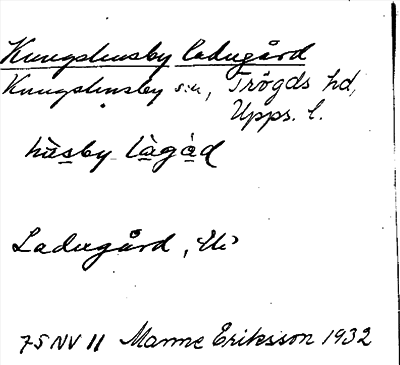 Kungshusby ladugård
Kungshusby s:n, Trögds hd,
Upps. l.
hùsby làgàd
Ladugård,
75 NV 11 Manne Eriksson 1932